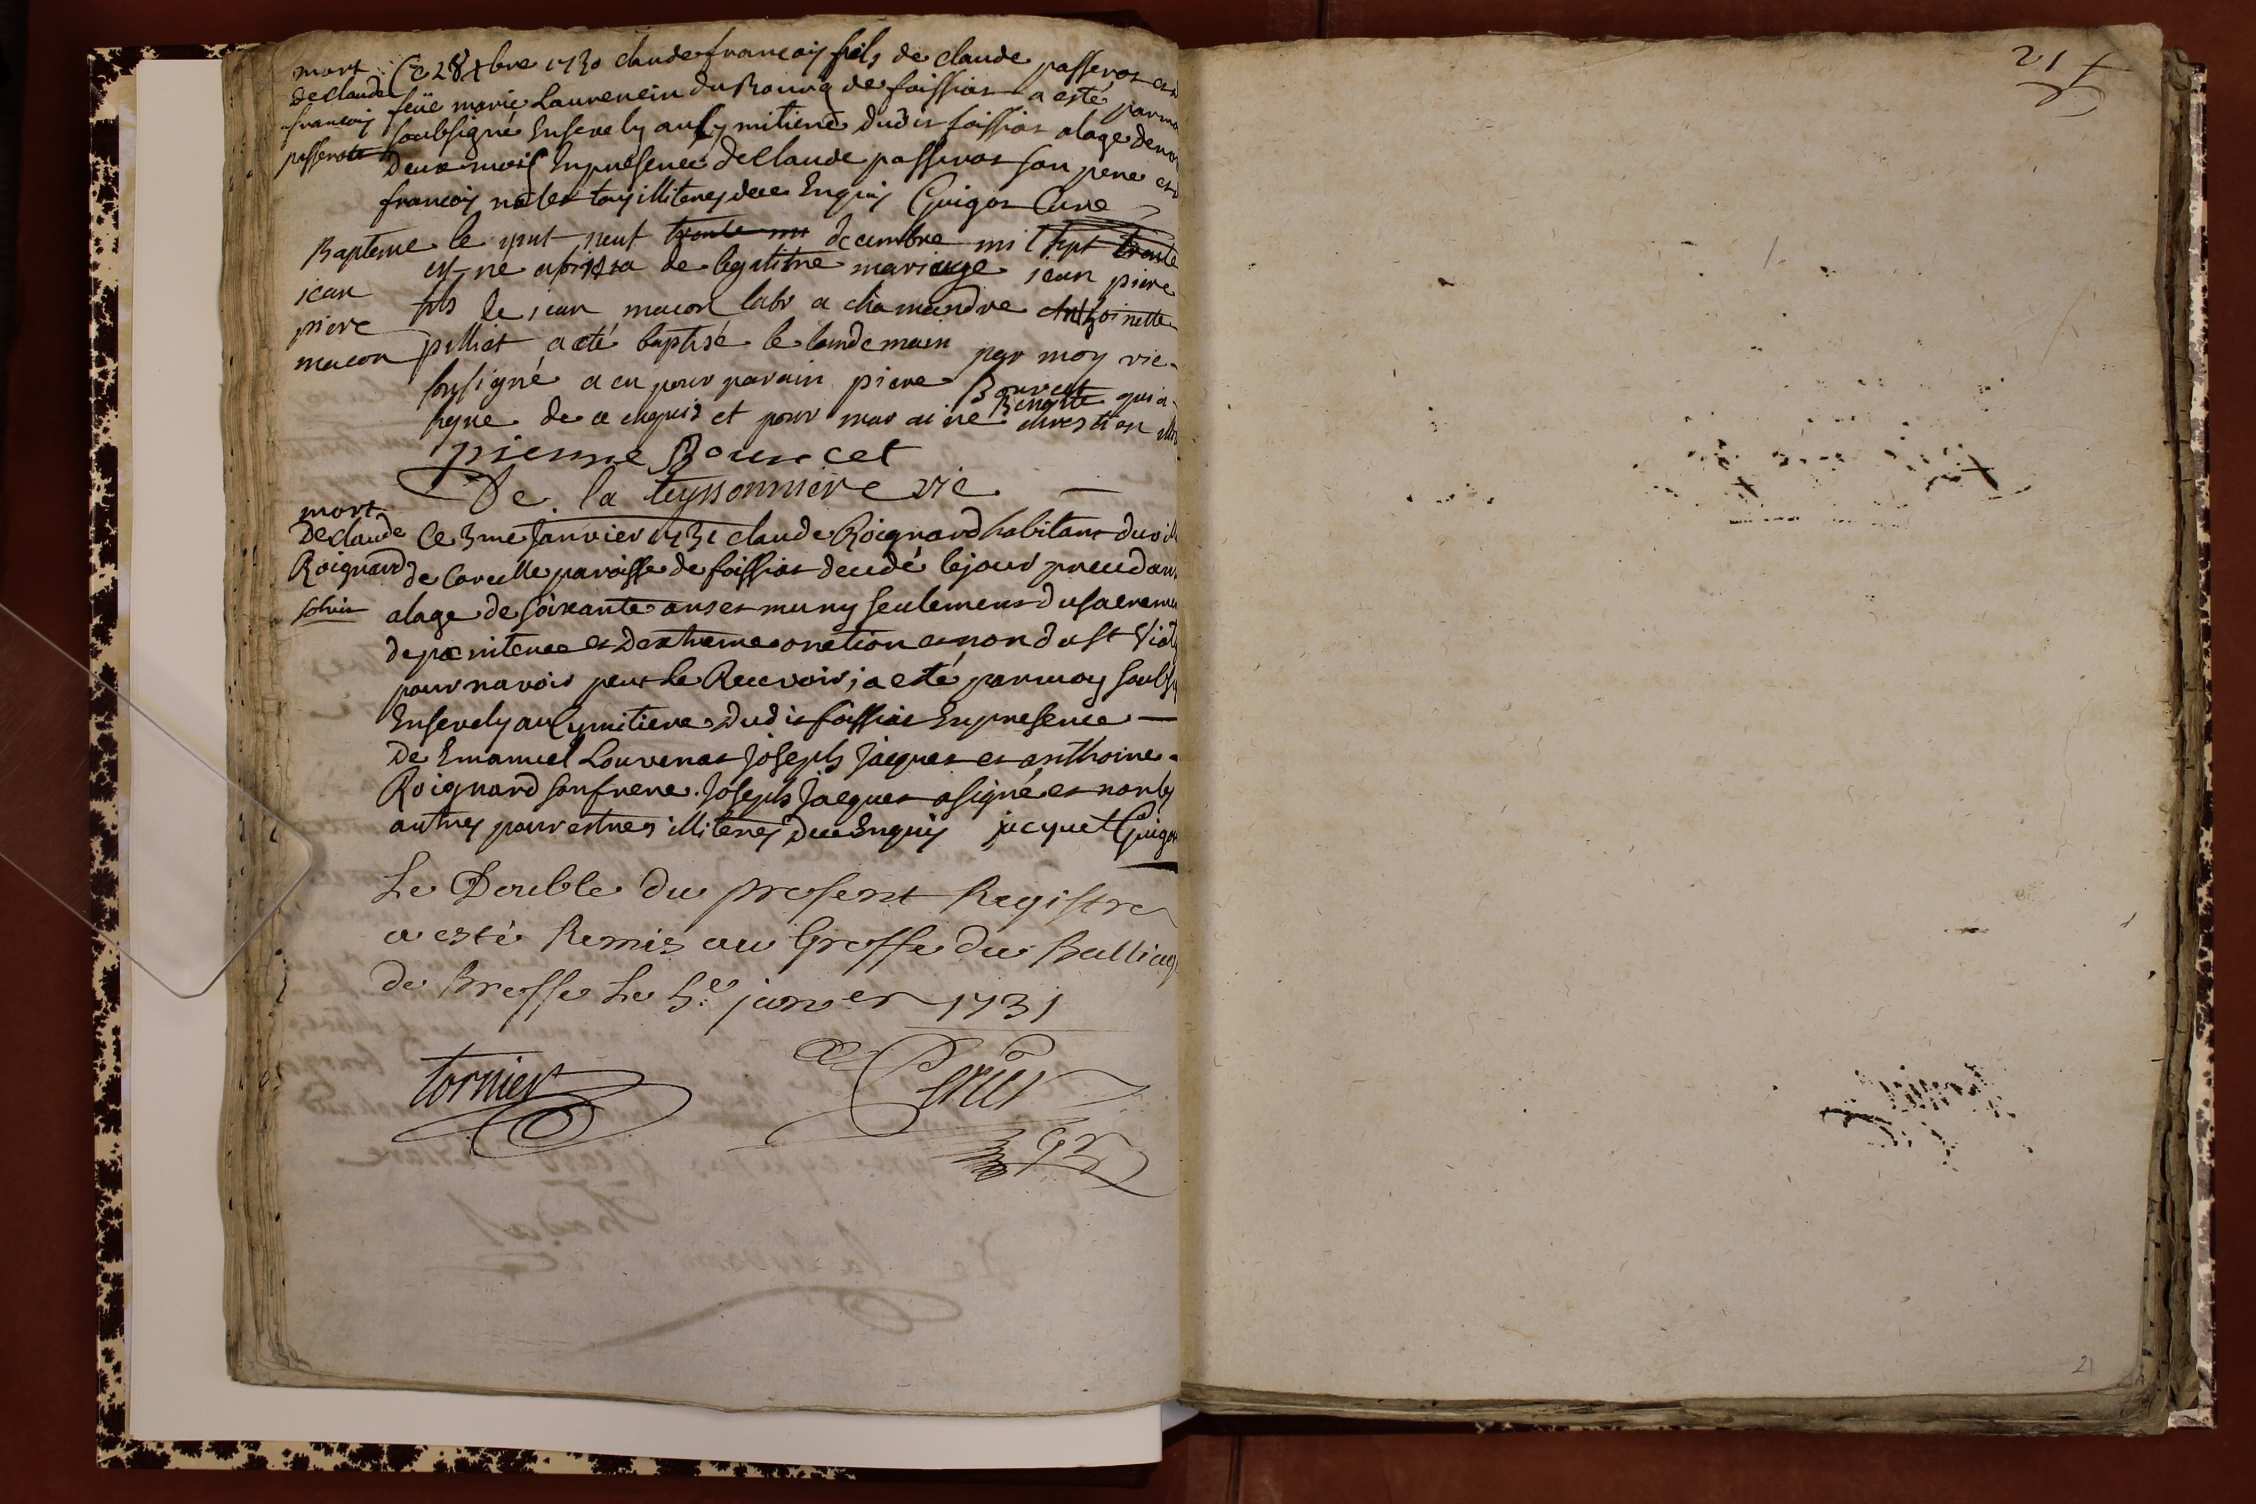 mort
de claude
francois
passerat
Ce 28 xbre 1730 claude francois fils de claude passerat et
feüe marie Laurencin du Bourg de foissiat a esté par mo
soubsigné Ensevely au Cymitiere dudit foissiat alage de
deux mois En presence de Claude passerat son pere et
francois tous illiteres de ce Enquis Guigot Curé
Bapteme
jean
piere
macon
le vint neuf decembre mil sept trente
est né de legitime mariage jean piere
fils de jean macon labr a chamandre Anthoinette
pilliat a eté baptisé le landemain par moy vic
sousigné a eu pour parain piere Bouncet qui a
signe de ce enquis et pour maraine Benoitte
pierre Bouncet
De la teyssonniere vic
mort
De claude
Roignard
solvit
Ce 3me Janvier 1731 claude Roignard habitant du vill
de Corcelle paroisse de foissiat decedé le jour precedan
alage de soixante ans et muny seulement du sacreme
de pœnitence et dextreme onction et non du St Viat
pour navoir peut le Recevoir, a esté par moy soubs
Ensevely au Cymitiere dudit foissiat En presence
De Emanuel Louvenat Joseph Jacquet et anthoine
Roignard son frere. Joseph Jacquet a signé et non les
autres pour estre illiteres de ce Enquis jacquet Guigot
Le Double du present Registre
a esté Remis au Greffe du Balliag
de Bresse Le 5e janver 1731
tornier
Perier
Gr
21
21